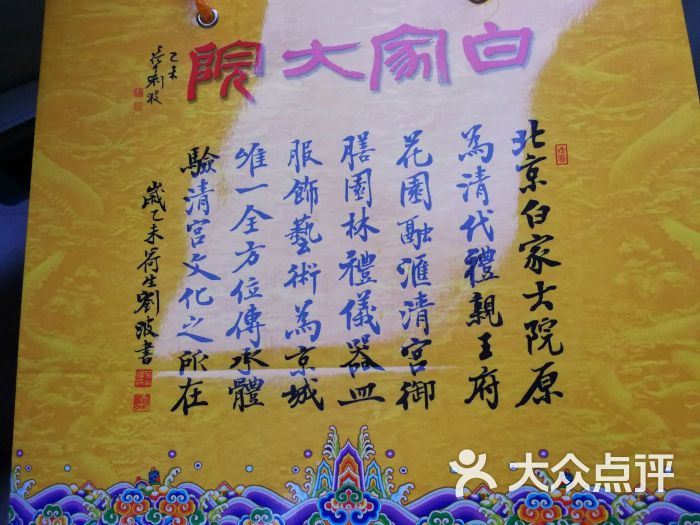 白家大院
乙未
荷生劉波
北京白家大院原
為清代禮親王府
花園融滙清宮御
膳園林禮儀器皿
服飾藝術為京城
唯一全方位傳承體
驗清宮文化之所在
歲乙未荷生劉波書
大众点评